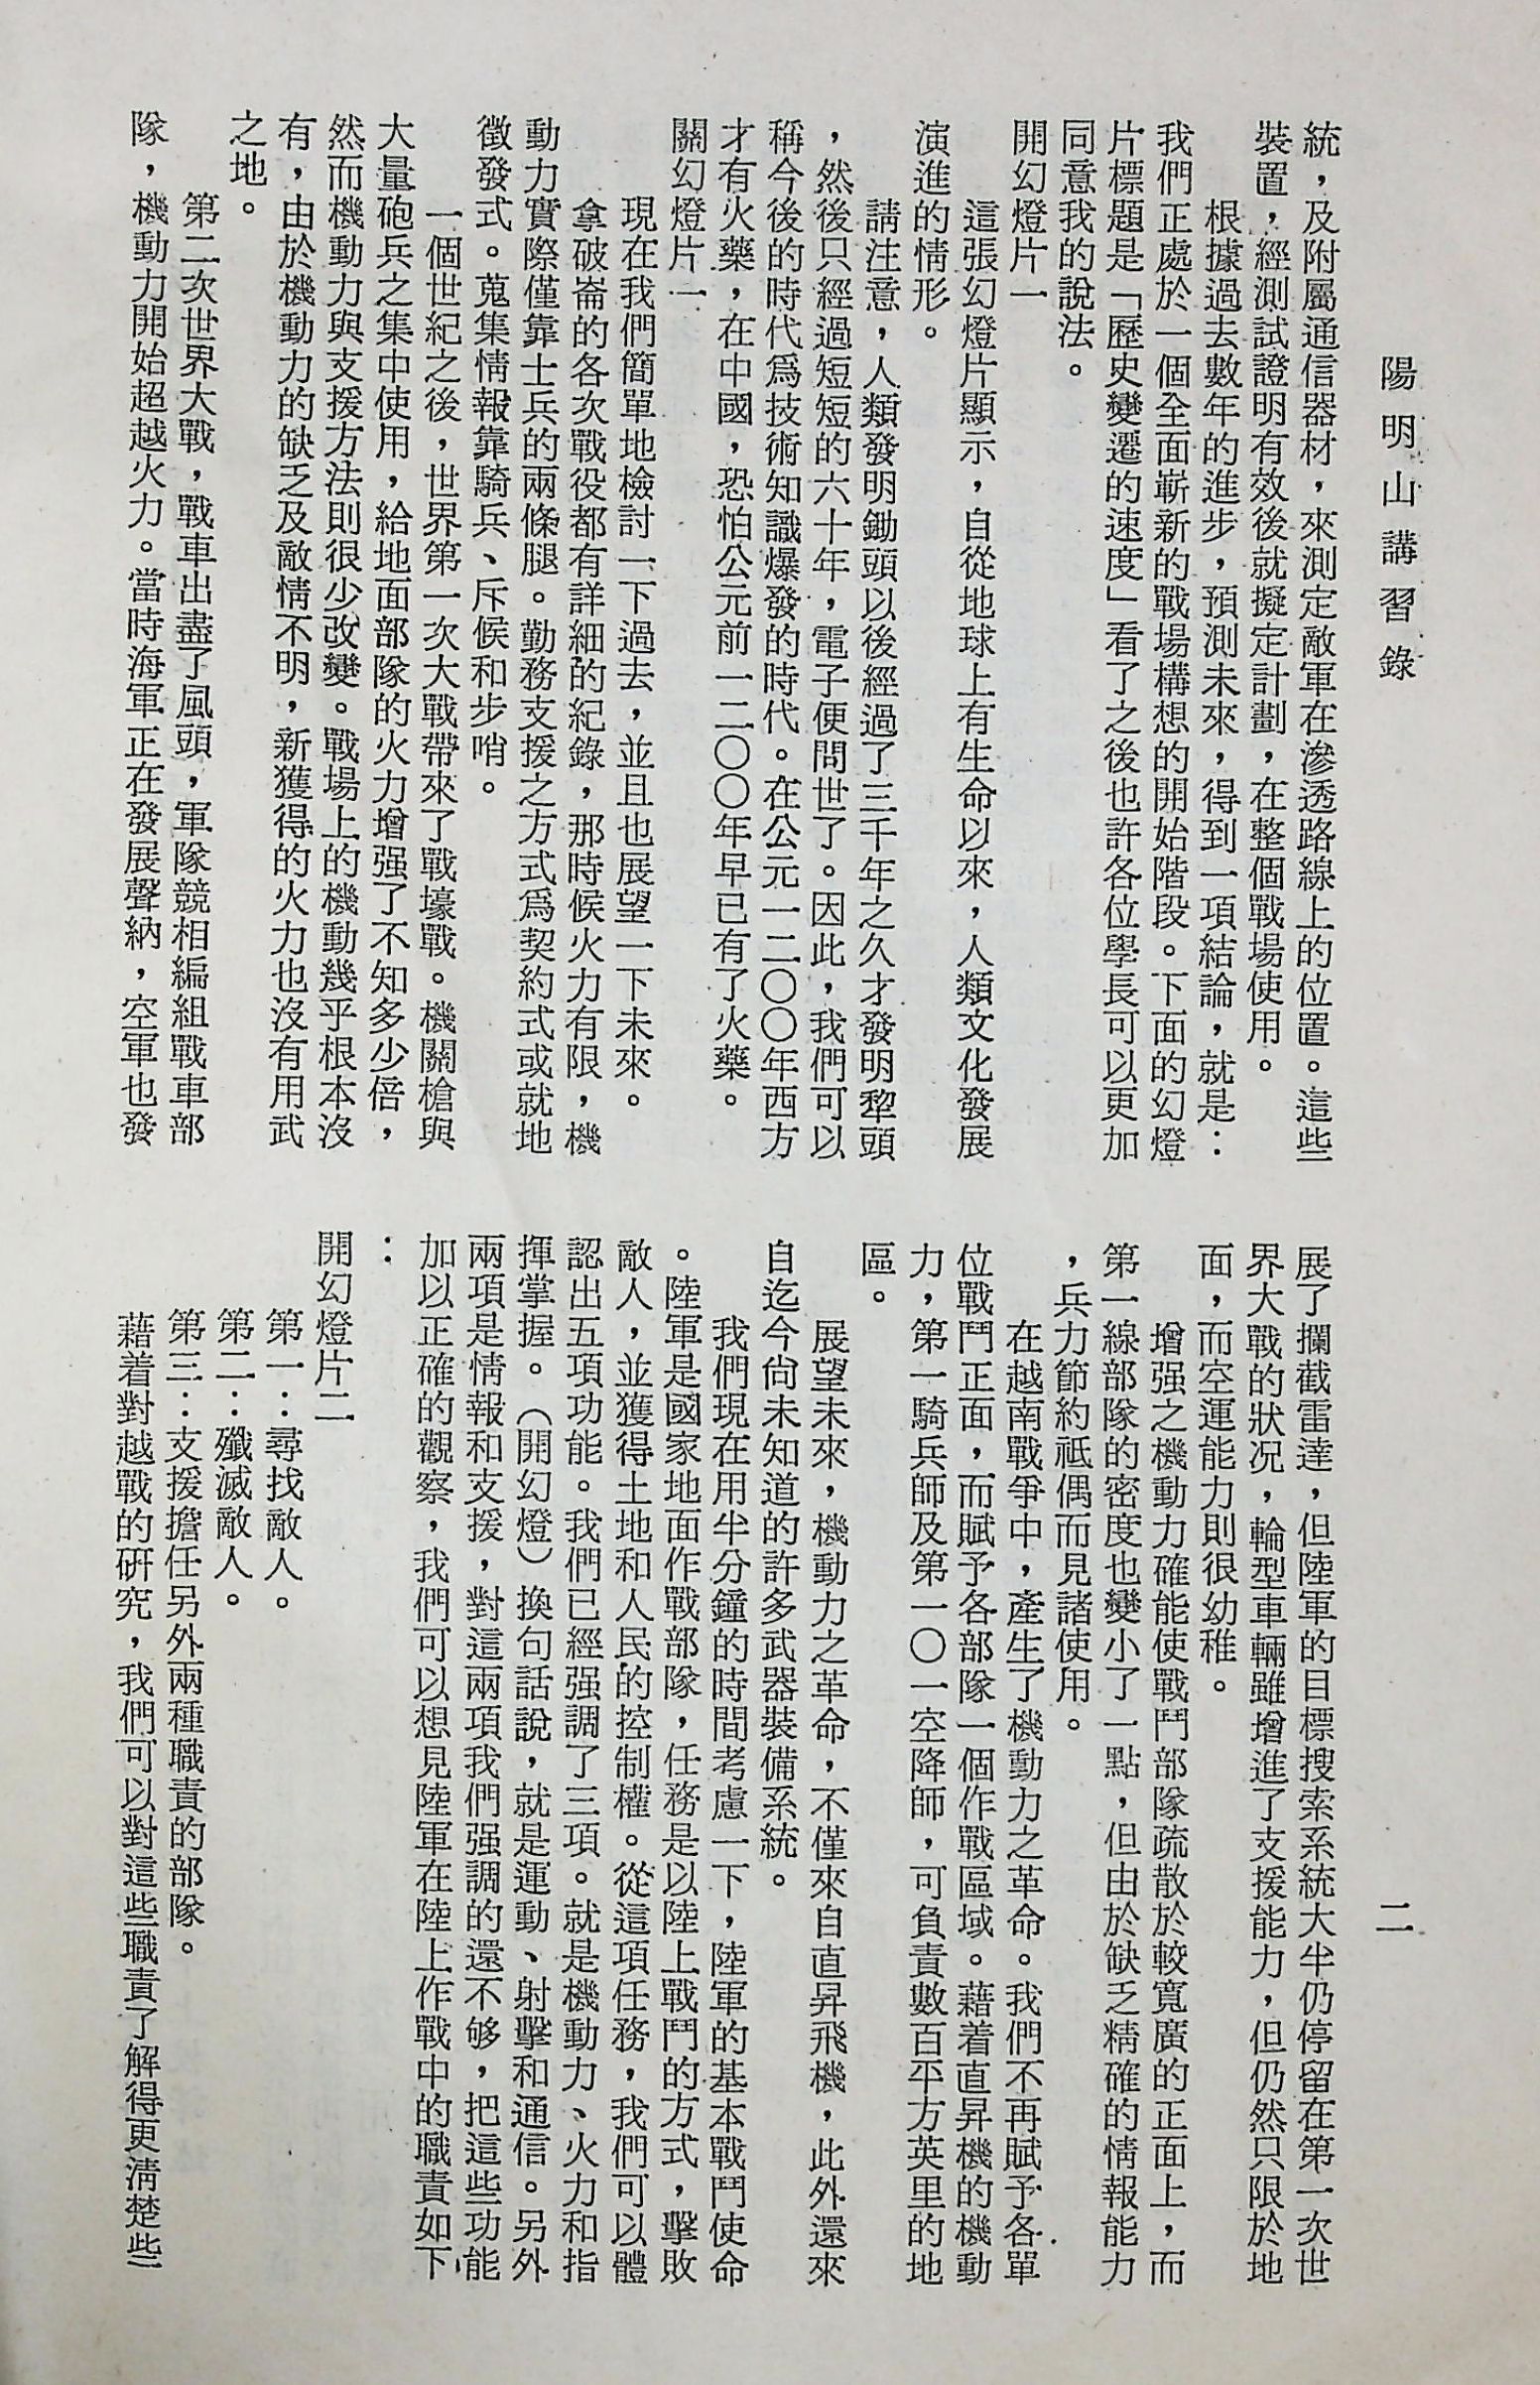 陽明山講習錄
二
統，及附屬通信器材，來測定敵軍在滲透路線上的位置。這些
裝置，經測試證明有效後就擬定計劃，在整個戰場使用。
根據過去數年的進步，預測未來，得到一項結論，就是：
我們正處於一個全面嶄新的戰場構想的開始階段。下面的幻燈
片標題是「歷史變遷的速度」看了之後也許各位學長可以更加
同意我的說法。
開幻燈片一
這張幻燈片顯示，自從地球上有生命以來，人類文化發展
演進的情形。
請注意，人類發明鋤頭以後經過了三千年之久才發明犂頭
，然後只經過短短的六十年，電子便問世了。因此，我們可以
稱今後的時代爲技術知識爆發的時代。在公元一二〇〇年西方
才有火藥，在中國，恐怕公元前一二〇〇年早已有了火藥。
關幻燈片一
現在我們簡單地檢討一下過去，並且也展望一下未來。
拿破崙的各次戰役都有詳細的紀錄，那時候火力有限，機
動力實際僅靠士兵的兩條腿。勤務支援之方式爲契約式或就地
徵發式。蒐集情報靠騎兵、斥候和步哨。
一個世紀之後，世界第一次大戰帶來了戰壕戰。機關槍與
大量砲兵之集中使用，給地面部隊的火力增强了不知多少倍，
然而機動力與支援方法則很少改變。戰場上的機動幾乎根本沒
有，由於機動力的缺乏及敵情不明，新獲得的火力也沒有用武
之地。
第二次世界大戰，戰車出盡了風頭，軍隊競相編組戰車部
隊，機動力開始超越火力。當時海軍正在發展聲納，空軍也發
展了攔截雷達，但陸軍的目標搜索系統大半仍停留在第一次世
界大戰的狀况，輪型車輛雖增進了支援能力，但仍然只限於地
面，而空運能力則很幼稚。
增强之機動力確能使戰鬥部隊疏散於較寬廣的正面上，而
第一線部隊的密度也變小了一點，但由於缺乏精確的情報能力
，兵力節約祗偶而見諸使用。
在越南戰爭中，產生了機動力之革命。我們不再賦予各單
位戰鬥正面，而賦予各部隊一個作戰區域。藉着直昇機的機動
力，第一騎兵師及第一〇一空降師，可負責數百平方英里的地
區。
展望未來，機動力之革命，不僅來自直昇飛機，此外還來
自迄今尙未知道的許多武器裝備系統。
我們現在用半分鐘的時間考慮一下，陸軍的基本戰鬥使命
。陸軍是國家地面作戰部隊，任務是以陸上戰鬥的方式，擊敗
敵人，並獲得土地和人民的控制權。從這項任務，我們可以體
認出五項功能。我們已經强調了三項。就是機動力、火力和指
揮掌握。（開幻燈）換句話說，就是運動、射擊和通信。另外
兩項是情報和支援，對這兩項我們强調的還不够，把這些功能
加以正確的觀察，我們可以想見陸軍在陸上作戰中的職責如下
：
開幻燈片二
第一：尋找敵人。
第二：殲滅敵人。
第三：支援擔任另外兩種職責的部隊。
藉着對越戰的研究，我們可以對這些職責了解得更淸楚些